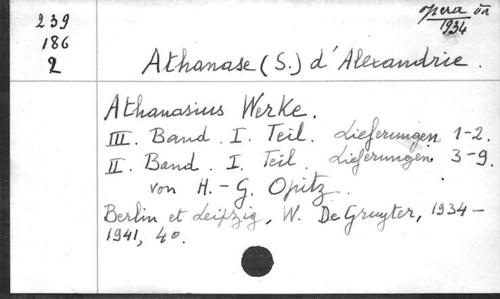 239
186
2
opera
1934
Athanase (S.) d'Alexandrie.
Athanasius Werke.
III. Band. I. Teil. Lieferungen 1-2.
II. Band. I. Teil. Lieferungen 3-9.
von H.-G. Opitz.
Berlin et Leipzig, W. De Gruyter, 1934-
1941, 4o.